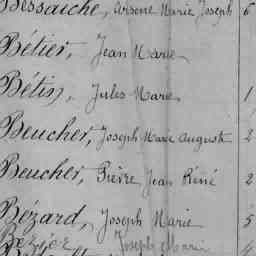 Bessaiche, Arsene Marie Joseph 6
Bétier, Jean Marie
Bétin, Jules Marie 1
Beucher, Joseph Marie Auguste 2
Beucher, Pierre Jean René 2
Bézard, Joseph Marie 5
Bezier Joseph Marie